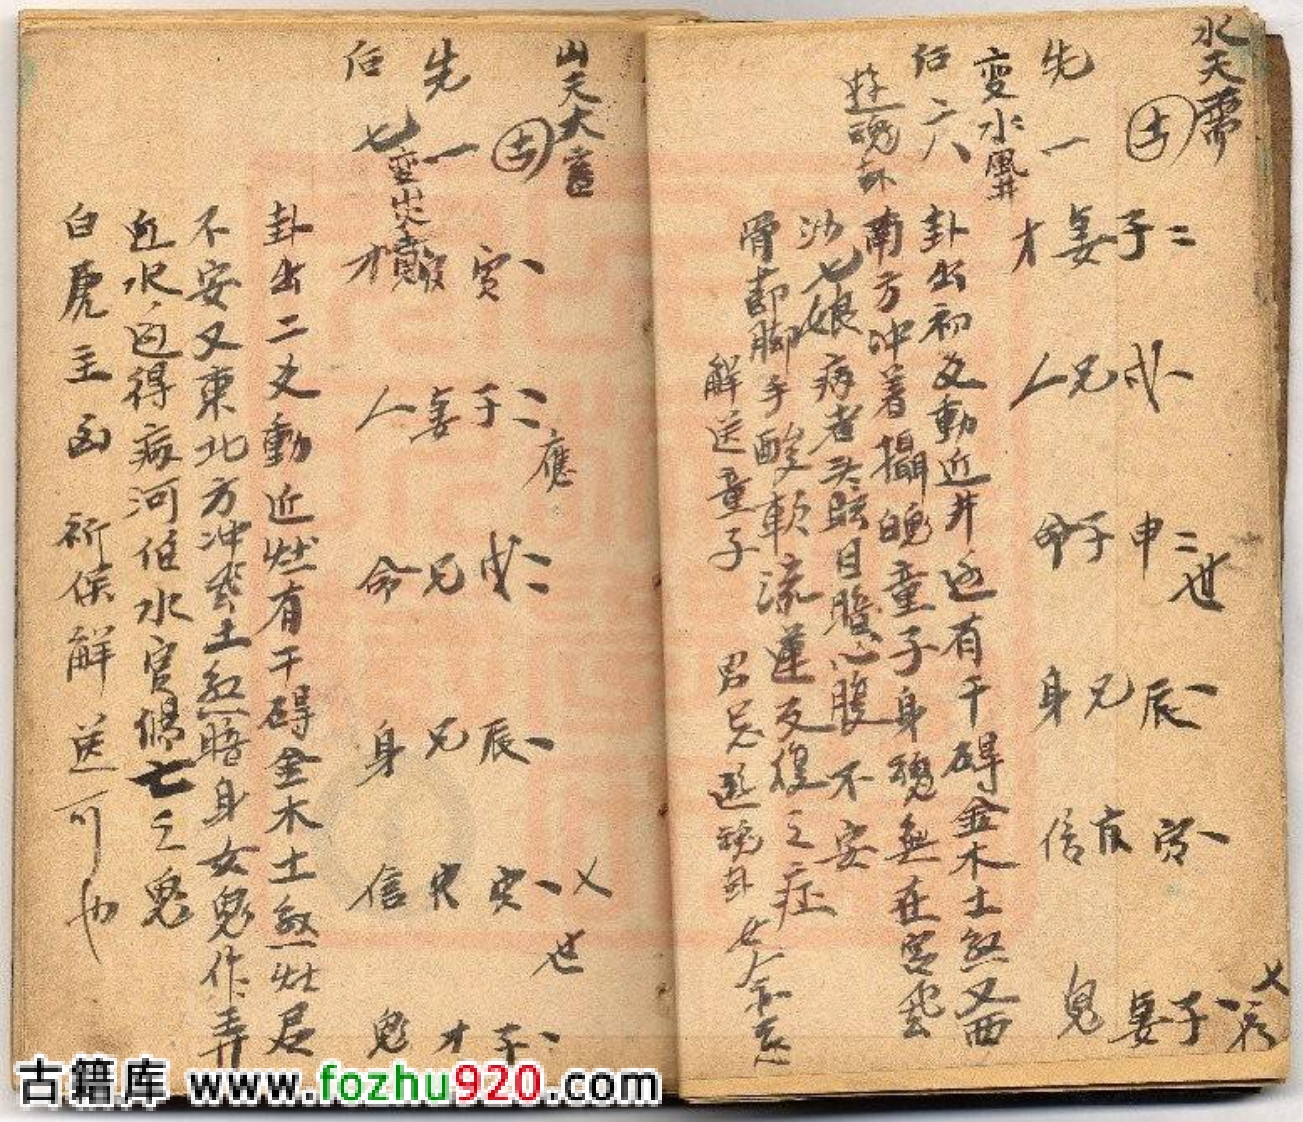 水天需
吉
先一
变水風井
后六
遊魂卦
二子妻才
戌兄人
二申子命
世
辰兄身
寅官信
子妻鬼
卦出初爻動近井边有干碍金木土煞又西
南方冲着攝魄童子身魂無在宮
七娘病者头眩目心腹不安
骨節脚手酸軟流蓮反復之症
解送童子
男忌遊魂卦女人
山天大畜
吉
先一
后七
寅才
子妻人
應
戌兄命
辰兄身
寅官信
世
子才鬼
卦出二爻動近灶有干碍金木土煞灶君
不安又東北方冲土煞身女鬼作弄
水边得病河伯水官傷亡之鬼
白虎主凶祈保解送可也
古籍库 www.fozhu920.com